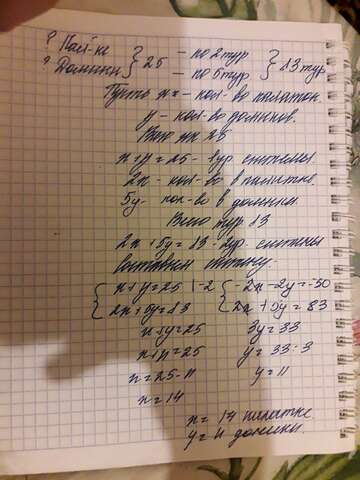 ? Пал-ке } 25 - по 2 тур } 83 тур
? Домики - по 5 тур
Пусть x - кол-во палаток.
y - кол-во домиков.
Всего их 25
x+y=25 - 1 ур системы.
2x - кол-во в палатке.
5y - кол-во в домике.
Всего тур 83
2x+5y=83 - 2 ур. системы
составим систему.
{ x+y=25 |-2 { -2x-2y=-50
2x+5y=83 2x+5y=83
x+y=25 3y=33
x+11=25 y=33:3
x=25-11 y=11
x=14
x=14 палатке
y=11 домики.